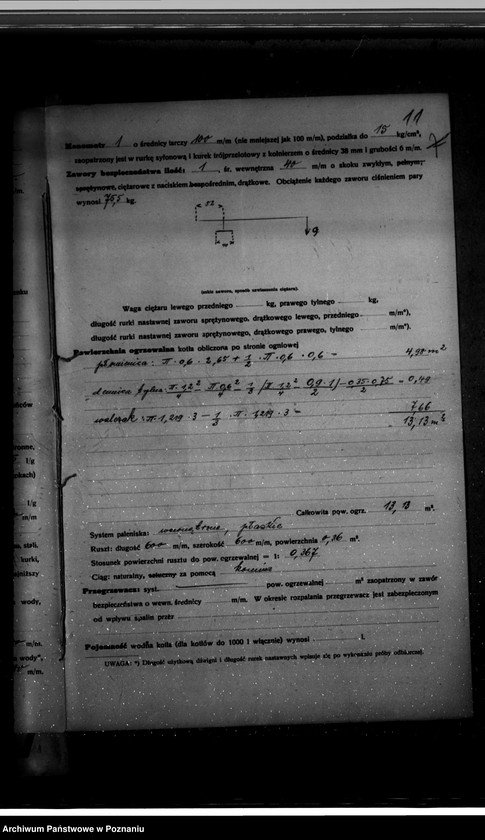 11
Manometr 1 o średnicy tarczy 100 m/m (nie mniejszej jak 100 m/m), podziałka do 15 kg/cm²,
zaopatrzony jest w rurkę syfonową i kurek trójprzelotowy z kołnierzem o średnicy 38 mm i grubości 6 m/m.
Zawory bezpieczeństwa Ilość: 1, śr. wewnętrzna 40 m/m o skoku zwykłym, pełnym;
sprężynowe, ciężarowe z naciskiem bezpośrednim, drążkowe. Obciążenie każdego zaworu ciśnieniem pary
wynosi 75,5 kg.
52
g
(szkic zaworu, sposób zawieszenia ciężaru).
Waga ciężaru lewego przedniego kg, prawego tylnego kg,
długość rurki nastawnej zaworu sprężynowego, drążkowego lewego, przedniego m/m*),
długość rurki nastawnej zaworu sprężynowego, drążkowego prawego, tylnego m/m*).
Powierzchnia ogrzewalna kotła obliczona po stronie ogniowej
płomienica: π · 0,6 · 2,65 + 1/2 · π · 0,6 · 0,6 = 4,98 m²
= 0,49
walczak: π · 1,219 · 3 − 1/3 · π · 1,219 · 3 = 7,66
13,13 m²
Całkowita pow. ogrz. 13,13 m².
System paleniska: wewnętrzne, płaskie
Ruszt: długość 600 m/m, szerokość 600 m/m, powierzchnia 0,36 m².
Stosunek powierzchni rusztu do pow. ogrzewalnej = 1: 0,367
Ciąg: naturalny, sztuczny za pomocą komina
Przegrzewacz: syst. pow. ogrzewalnej m² zaopatrzony w zawór
bezpieczeństwa o wewn. średnicy m/m. W okresie rozpalania przegrzewacz jest zabezpieczony
od wpływu spalin przez
Pojemność wodna kotła (dla kotłów do 1000 l włącznie) wynosi l.
UWAGA: *) Długość użytkową dźwigni i długość rurek nastawnych wpisuje się po wykonaniu próby odbiorczej.
l/g
l/g
m/m
kurki,
wody,
m/m.
m/m.
Archiwum Państwowe w Poznaniu